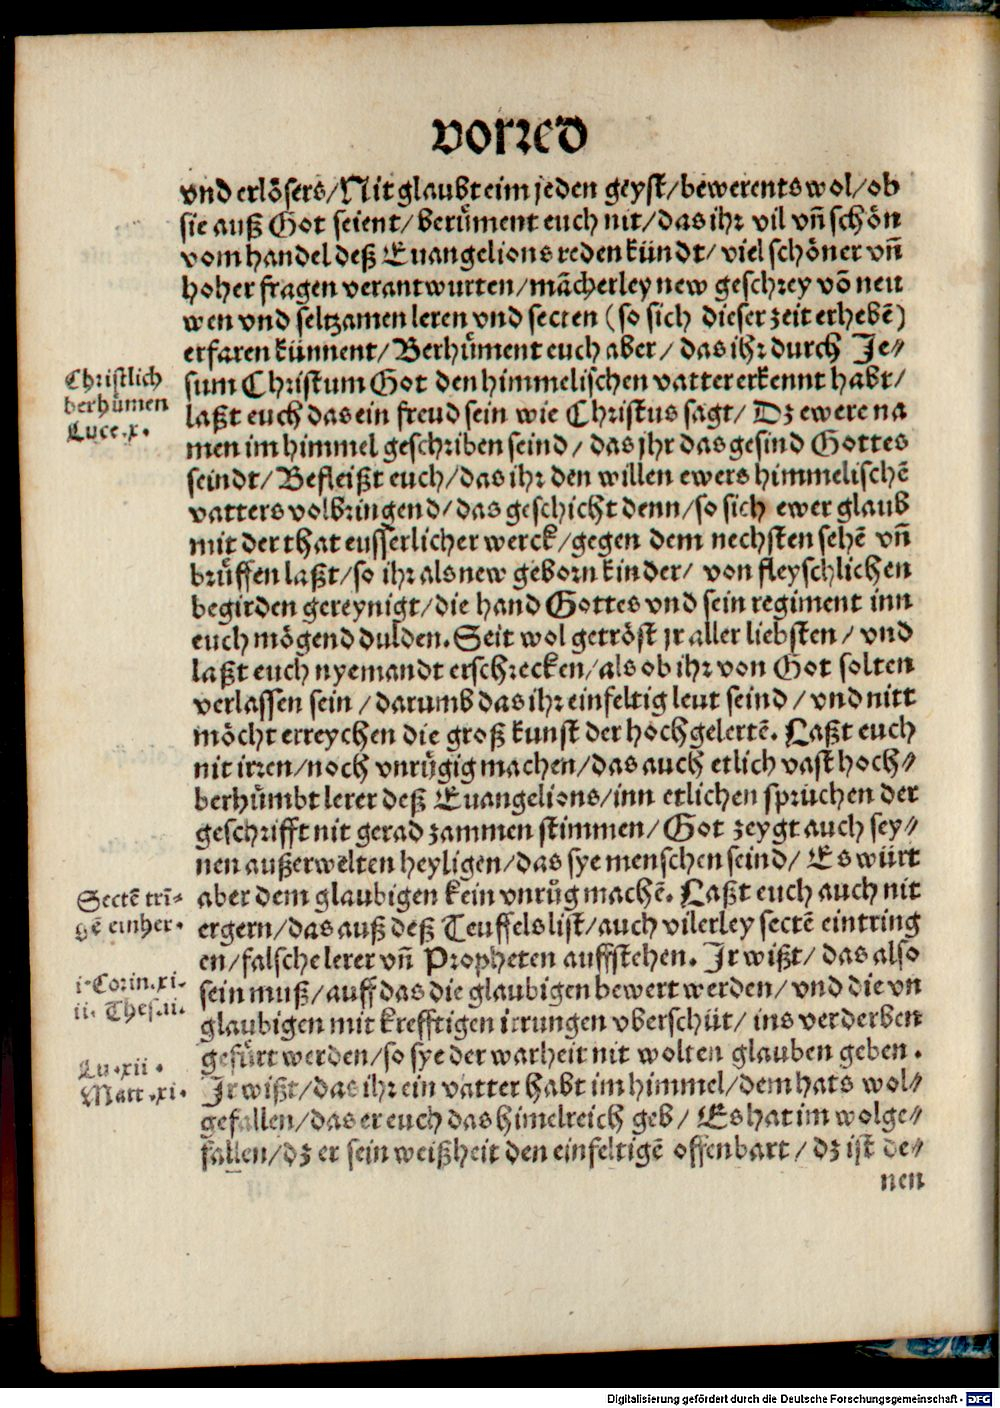 vorred
vnd erlösers/Nit glaubt eim jeden geyst/bewerents wol/ob
sie auß Got seient/berüment euch nit/das ihr vil vñ schön
vom handel deß Euangelions reden kündt/viel schöner vñ
hoher fragen verantwurten/mãcherley new geschrey võ neu
wen vnd seltzamen leren vnd secten (so sich dieser zeit erhebẽ)
erfaren künnent/Berhüment euch aber/das ihr durch Je⸗
Christlich
berhümen
Luce.x.
sum Christum Got den himmelischen vatter erkennt habt/
laßt euch das ein freud sein wie Christus sagt/Dz ewere na
men im himmel geschriben seind/das jhr das gesind Gottes
seindt/Befleißt euch/das ihr den willen ewers himmelischẽ
vatters volbringend/das geschicht denn/so sich ewer glaub
mit der that eusserlicher werck/gegen dem nechsten sehẽ vñ
brüffen laßt/so ihr als new geborn kinder/von fleyschlichen
begirden gereynigt/die hand Gottes vnd sein regiment inn
euch mögend dulden. Seit wol getröst jr aller liebsten/vnd
laßt euch nyemandt erschrecken/als ob ihr von Got solten
verlassen sein/darumb das ihr einfeltig leut seind/vnd nitt
möcht erreychen die groß kunst der hochgelertẽ. Laßt euch
nit irren/noch vnrügig machen/das auch etlich vast hoch⸗
berhümbt lerer deß Euangelions/inn etlichen sprüchen der
geschrifft nit gerad zammen stimmen/Got zeygt auch sey⸗
nen außerwelten heyligen/das sye menschen seind/Es würt
Sectẽ trĩ-
gẽ einher.
aber dem glaubigen kein vnrüg machẽ. Laßt euch auch nit
ergern/das auß deß Teuffels list/auch vilerley sectẽ eintring
en/falsche lerer vñ Propheten auffstehen. Jr wißt/das also
i.Corin.xi.
ii. Thes.ii.
sein muß/auff das die glaubigen bewert werden/vnd die vn
glaubigen mit krefftigen irrungen vberschüt/ins verderben
gefürt werden/so sye der warheit nit wolten glauben geben.
Lu.xii.
Matt.xi.
Jr wißt/das ihr ein vatter habt im himmel/dem hats wol⸗
gefallen/das er euch das himelreich geb/Es hat im wolge⸗
fallen/dz er sein weißheit den einfeltigẽ offenbart/dz ist de⸗
nen
Digitalisierung gefördert durch die Deutsche Forschungsgemeinschaft - DFG